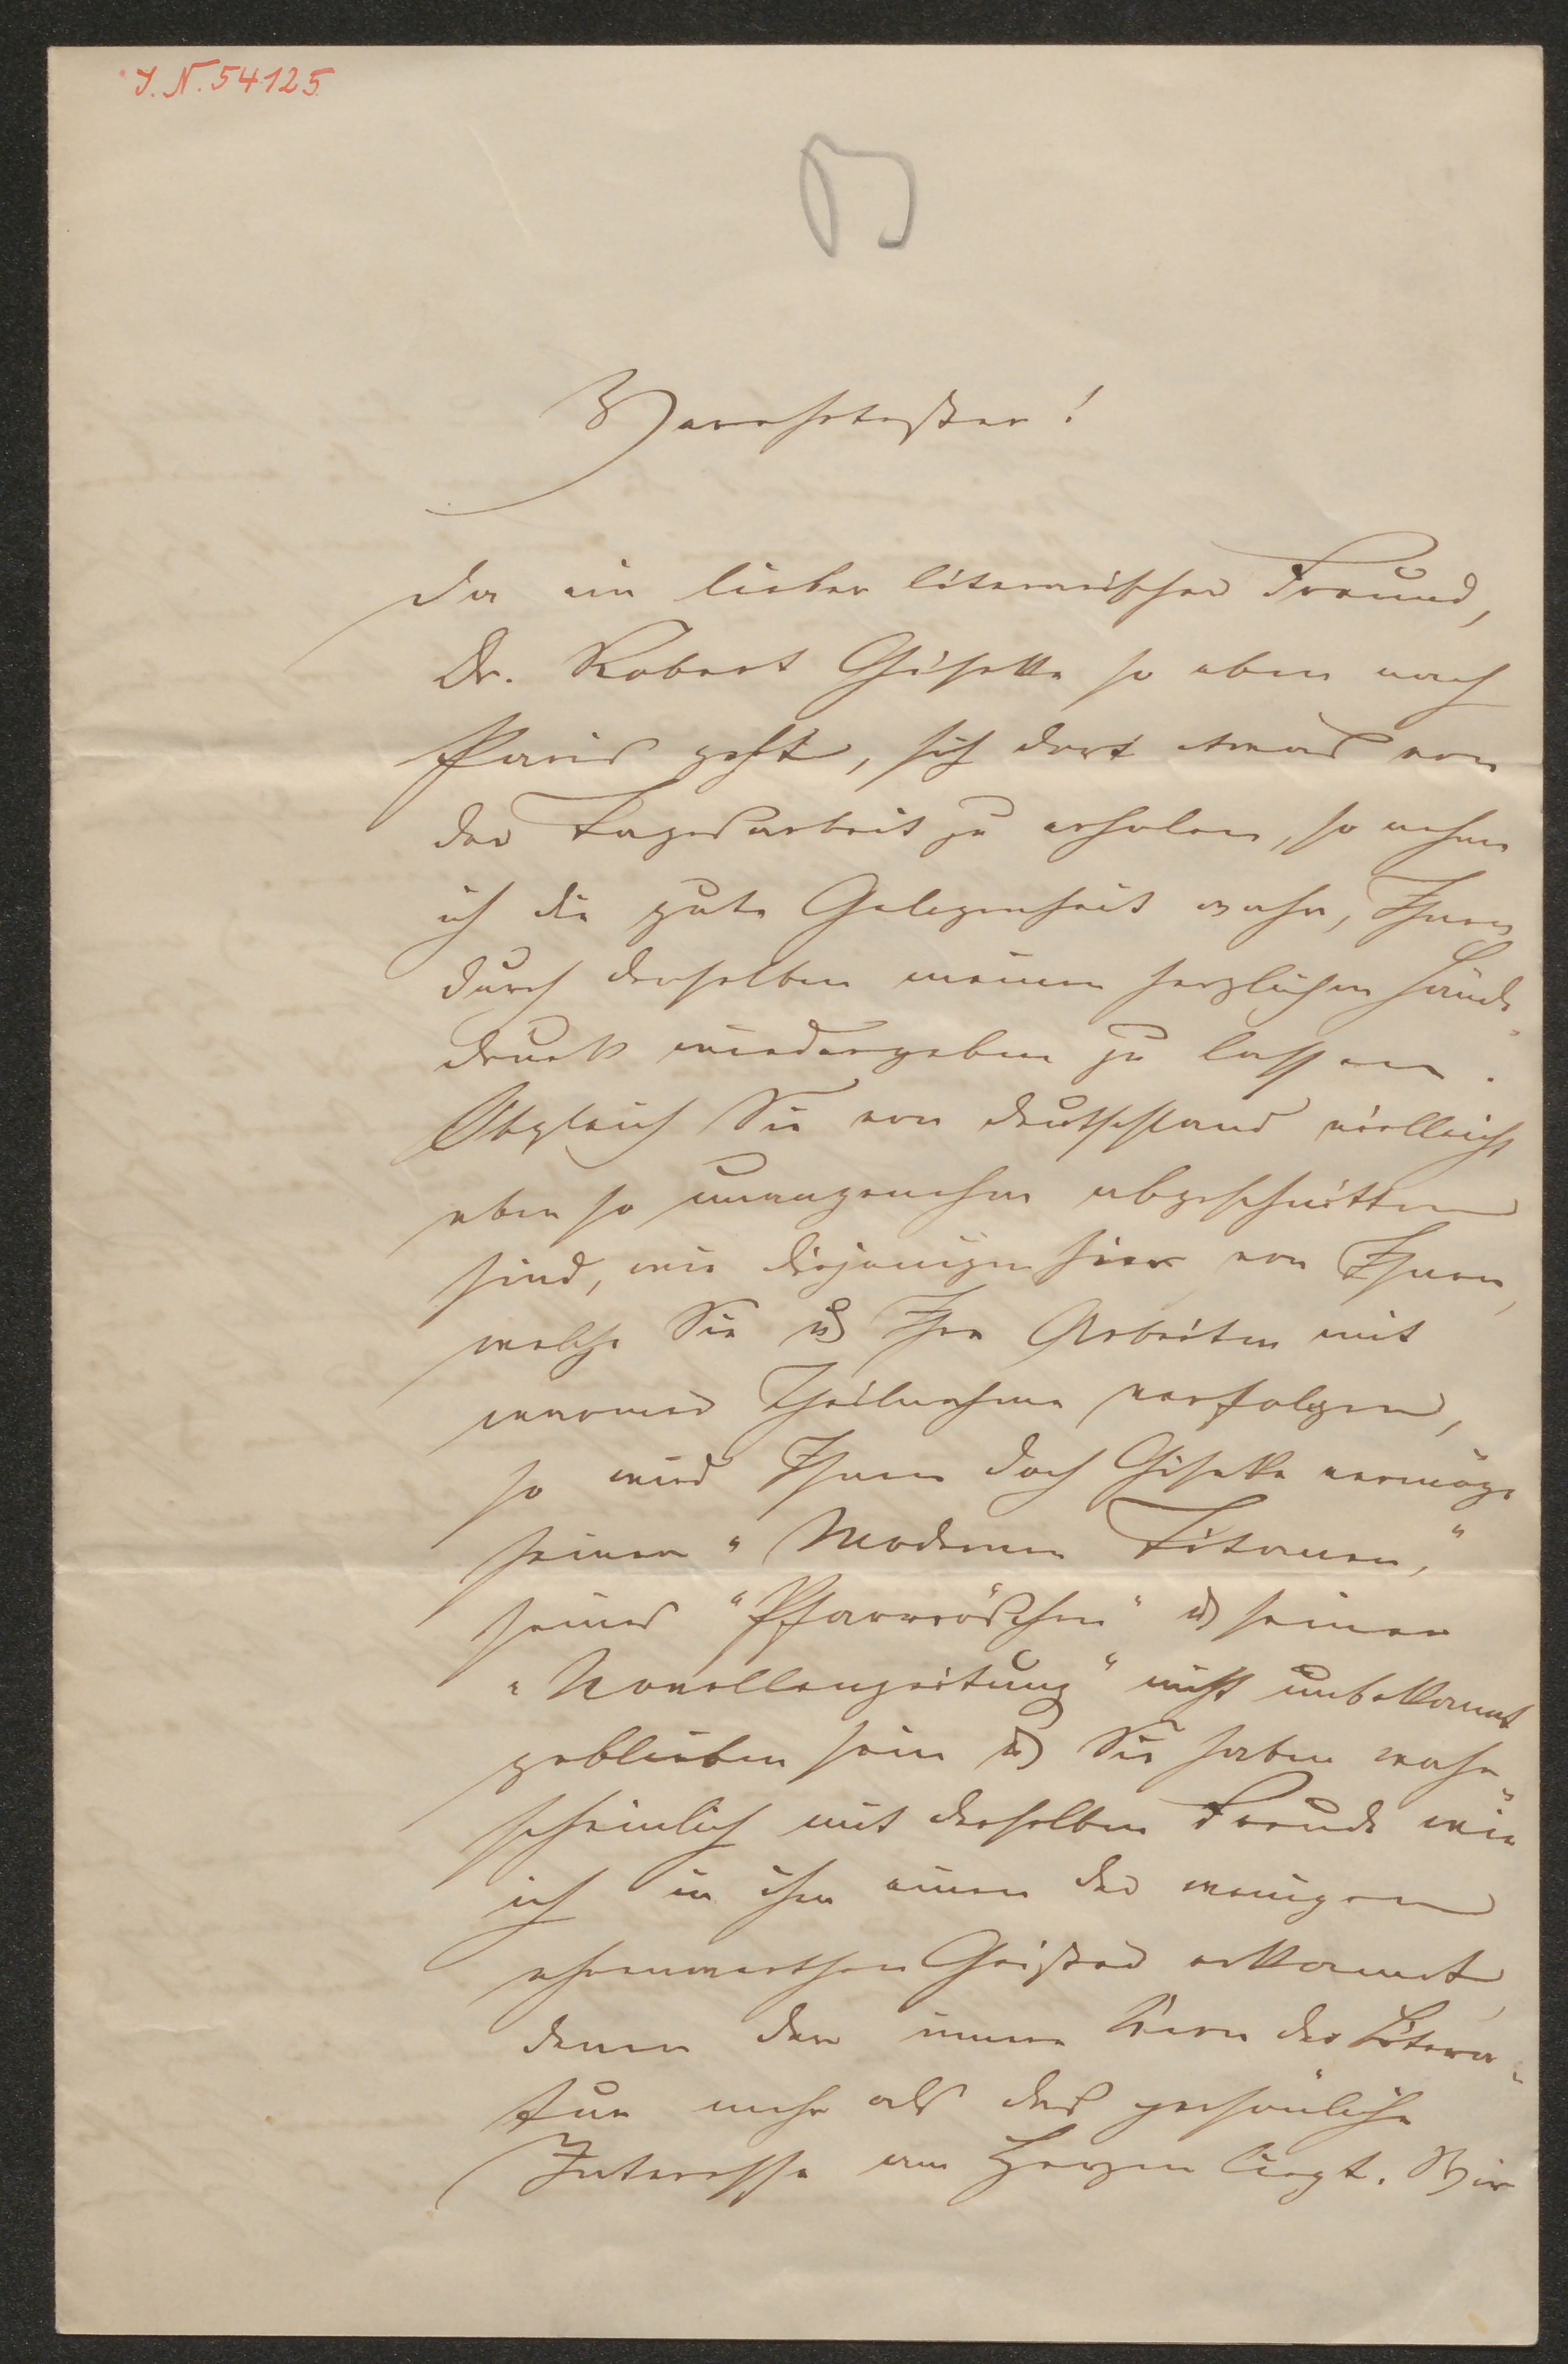 I. N. 54125
Verehrtester!
Da ein lieber literarischer Freund,
Dr. Robert Giseke so eben nach
Paris geht, sich dort etwas von
der Tagesarbeit zu erholen, so nehme
ich die gute Gelegenheit wahr, Ihnen
durch denselben meinen herzlichen Hände-
druck wiedergeben zu lassen.
Obgleich Sie von Deutschland vielleicht
eben so unangenehm abgeschnitten
sind, wie diejenigen hier von Ihnen,
welche Sie u Ihre Arbeiten mit
warmer Theilnahme verfolgen,
so wird Ihnen doch Giseke vermöge
seiner "Modernen Titanen,"
seines "Pfarrröschen" u seiner
"Novellenzeitung" nicht unbekannt
geblieben sein u Sie haben wahr-
scheinlich mit derselben Freude wie
ich in ihm einen der wenigen
ehrenwerthen Geister erkannt,
denen der innere Kern der Litera-
tur mehr als das persönliche
Interesse am Herzen liegt. Wir